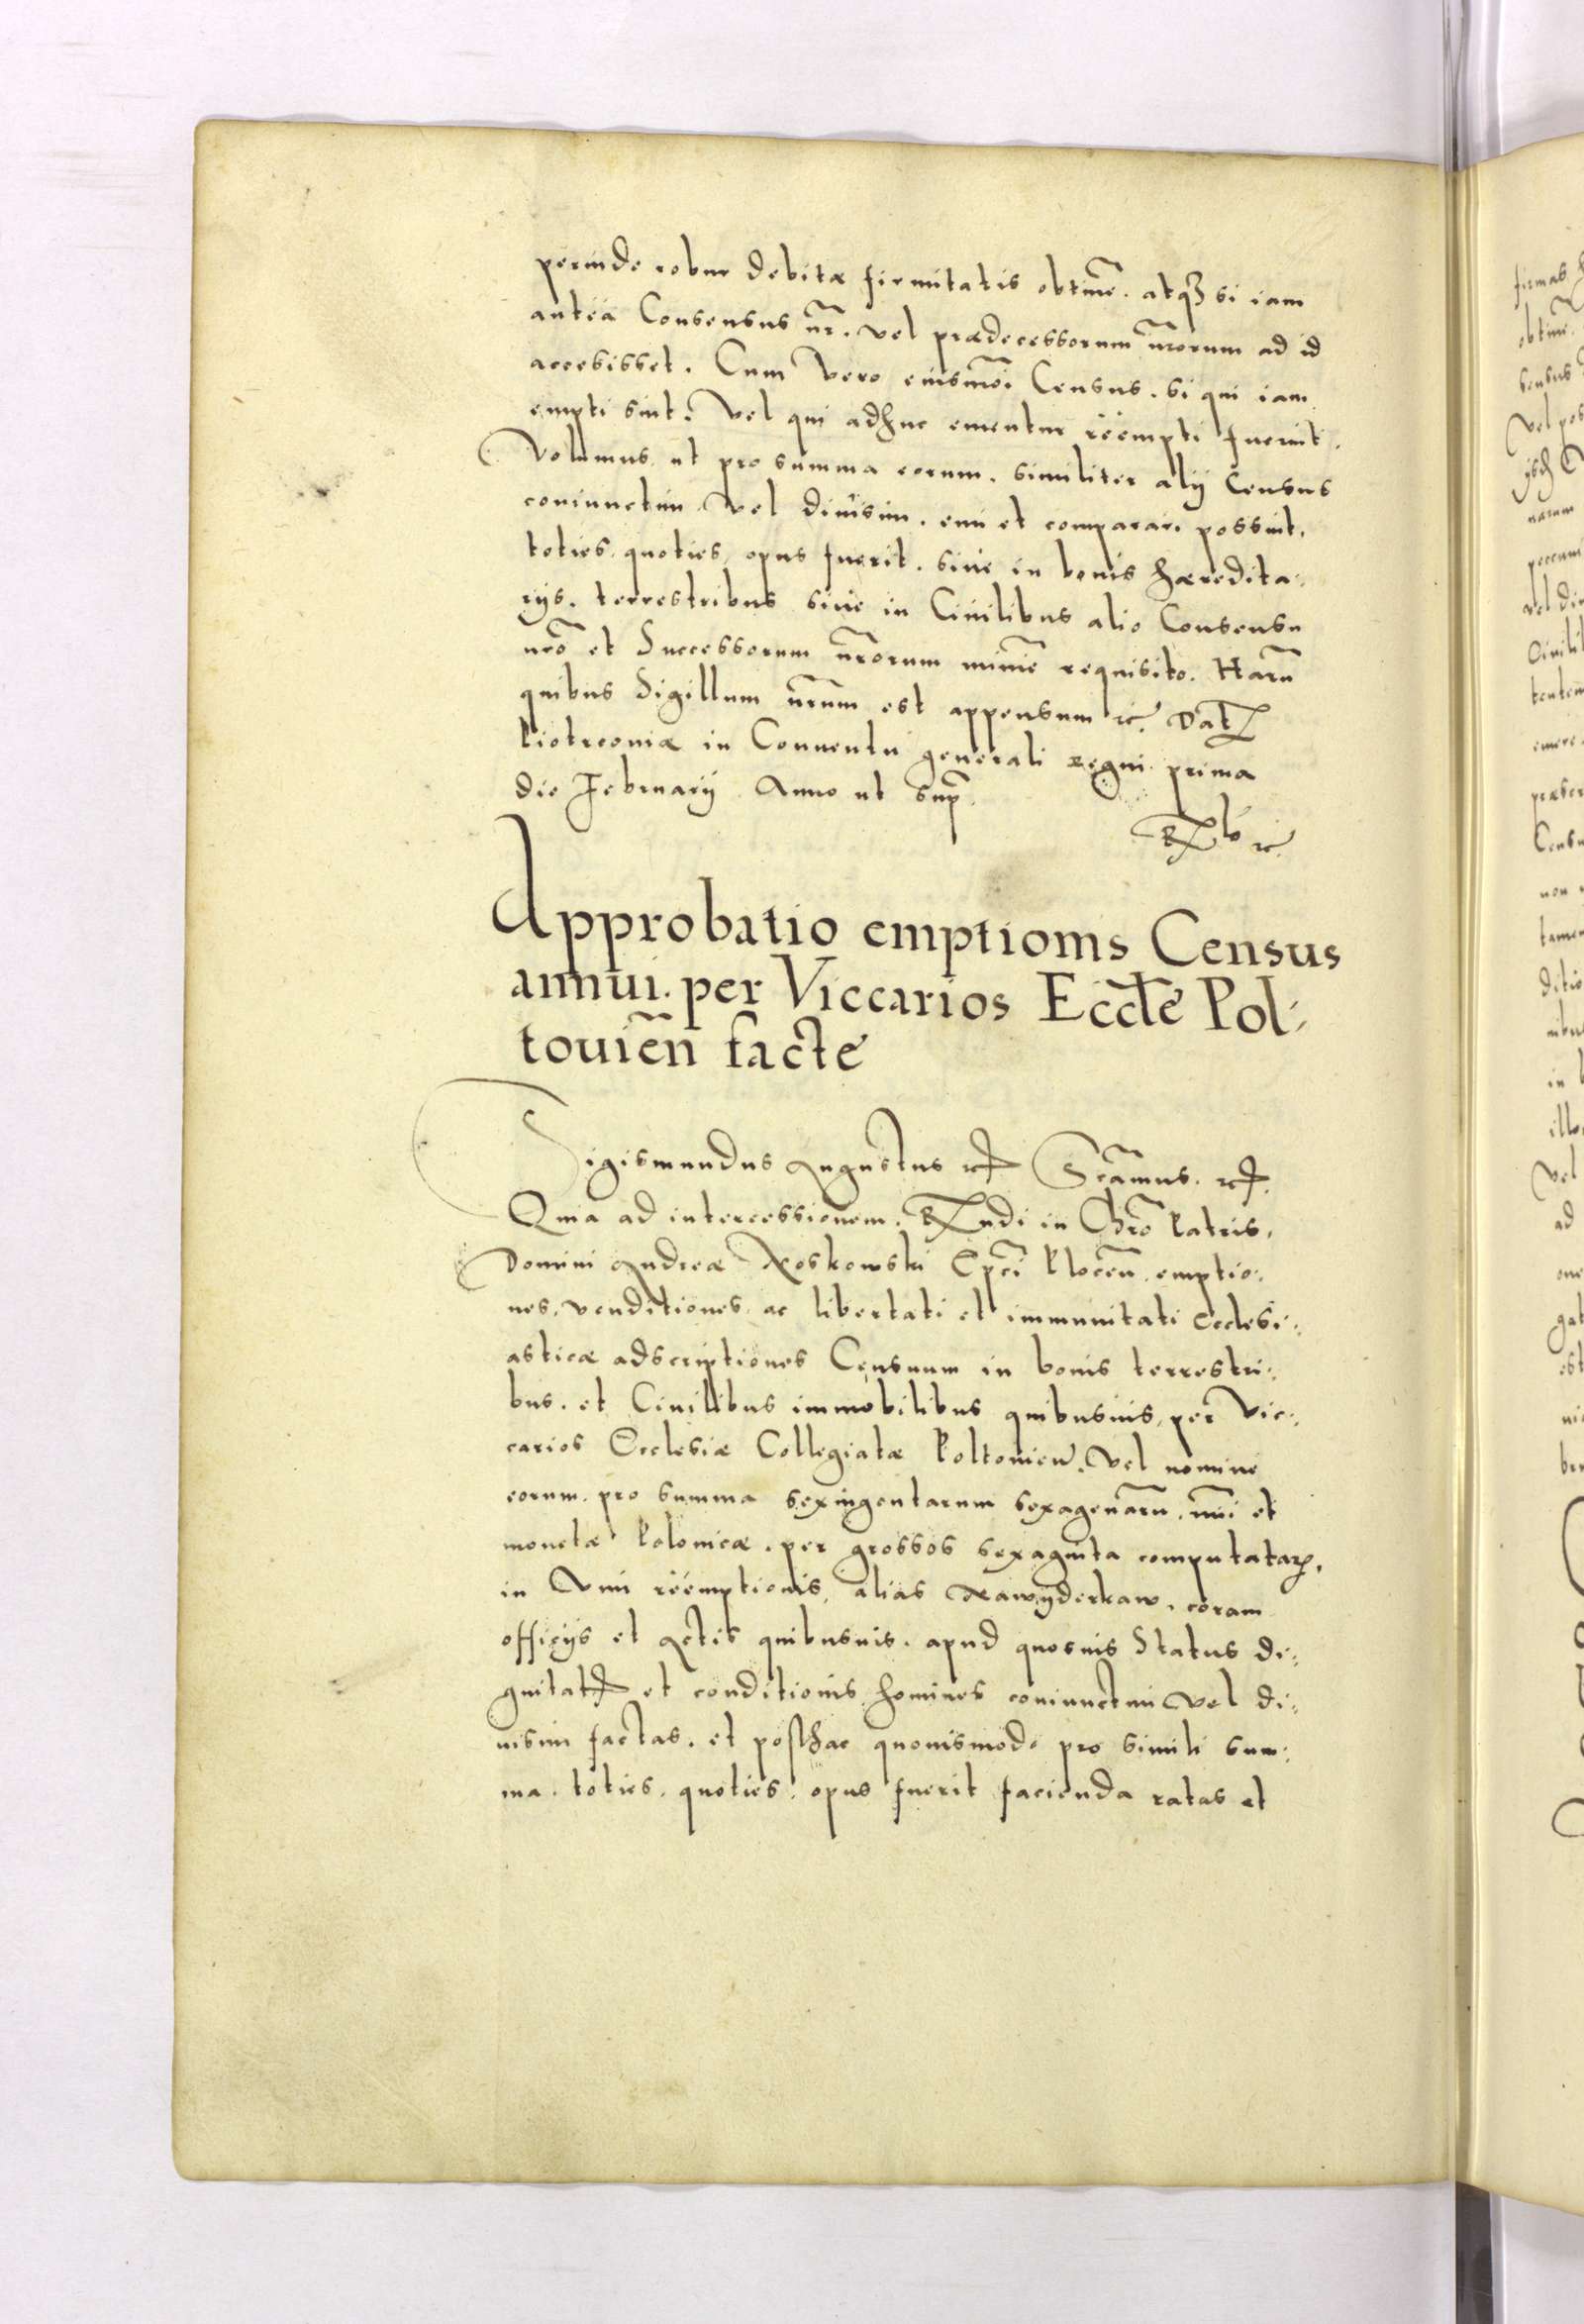 perinde robur debitæ firmitatis obtinẽ. atqꝫ si iam
antea Consensus nr̃. vel prædecessorum nr̃orum ad id
accesisset. Cum vero eiusmõi Census. si qui iam
empti sint. vel qui adhuc ementur reempti fuerint.
Volumus ut pro summa eorum. similiter alÿ Census
coniunctim vel diuisim. emi et comparari possint,
toties quoties opus fuerit. siue in bonis hæredita:
rÿs. terrestribus siue in Ciuilibus alio Consensu
nrõ et Successorum nr̃orum minimẽ requisito. Harũ
quibus Sigillum nr̃um est appensum ꝛc̃. Datꝝ
Piotrconiæ in Conuentu generali regni prima
die Februarÿ Anno ut sup̃.
Rꝝ lõ ꝛc.
Approbatio emptionis Census
annui. per Viccarios Eccl̃e Pol:
touien̄ facte
Sigismundus Augustus ꝛc̃ Scr̃amus. ꝛc̃.
Quia ad intercessionem. Rꝝndi in Chrõ Patris.
Domini Andreæ Noskowski Ep̃ci Plocen̄. emptio:
nes. venditiones ac libertati et immunitati Ecclesi:
asticæ adscriptiones Censuum in bonis terrestri:
bus. et Ciuilibus immobilibus quibusuis, per Vic:
carios Ecclesiæ Collegiatæ Poltouien̄. vel nomine
eorum. pro summa sexingentarum sexagenarũ. nũi et
monetæ Polonicæ. per grossos sexaginta computatarꝝ,
in Vim reemptionis, alias nawÿderkaw. coram
officÿs et Actis quibusuis. apud quosuis Status di:
gnitatꝭ et conditionis homines coniunctim vel di:
uisim factas. et posthac quouismodo pro simili sum:
ma. toties. quoties. opus fuerit facienda ratas et